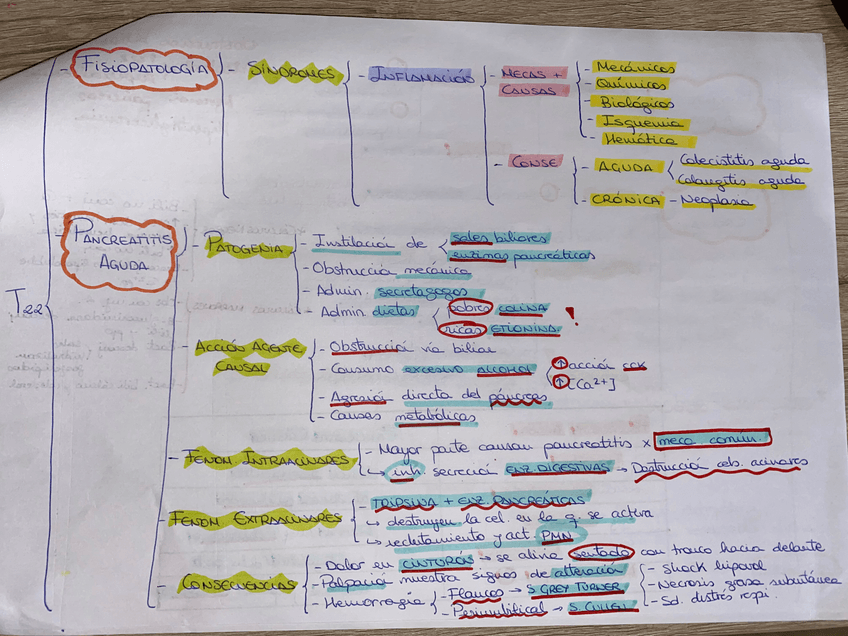 T22
- FISIOPATOLOGÍA - SÍNDROMES - INFLAMACIÓN - MECAS + CAUSAS
- Mecánicos
- Químicos
- Biológicos
- Isquemia
- Hemática
- CONSE
- AGUDA
Colecistitis aguda
Colangitis aguda
- CRÓNICA - Neoplasia
- PANCREATITIS AGUDA
- PATOGENIA
- Instilació de
sales biliares
enzimas pancreáticas
- Obstrucció mecánica
- Admin. secretagogos
- Admin. dietas
pobres COLINA
ricas ETIONINA
!
- ACCIÓN AGENTE CAUSAL
- Obstrucció vía biliar
- Consumo excesivo ALCOHOL
↑ acció CCK
↑ [Ca2+]
- Agresió directa del páncreas
- Causas metabólicas
- FENOM INTRAACINARES
- Mayor parte causan pancreatitis x meca común.
↳ inh. secreció ENZ. DIGESTIVAS → Destrucció cels. acinares
- FENOM EXTRAACINARES
- TRIPSINA + ENZ. PANCREÁTICAS
↳ destruyen la cel. en la q. se activa
↳ reclutamiento y act. PMN
- CONSECUENCIAS
- Dolor en CINTURÓN → se alivia sentado con tronco hacia delante
- Palpació muestra signos de alteració
- Shock hipovol
- Necrosis grasa subcutánea
- Sd. distrés respi.
- Hemorragia
- Flancos → S GREY TURNER
- Periumbilical → S. CULLEN